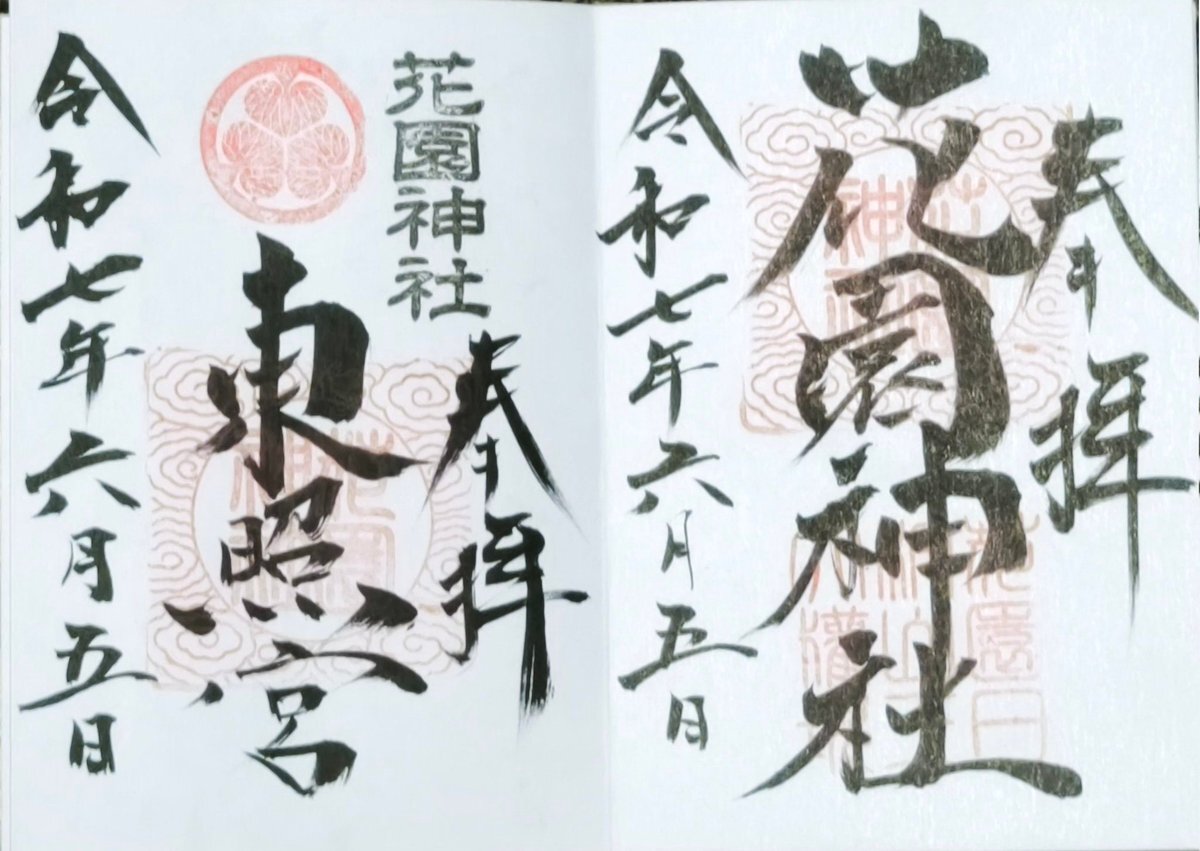 奉拝
花園神社
令和七年六月五日
花園神社
奉拝
東照宮
令和七年六月五日